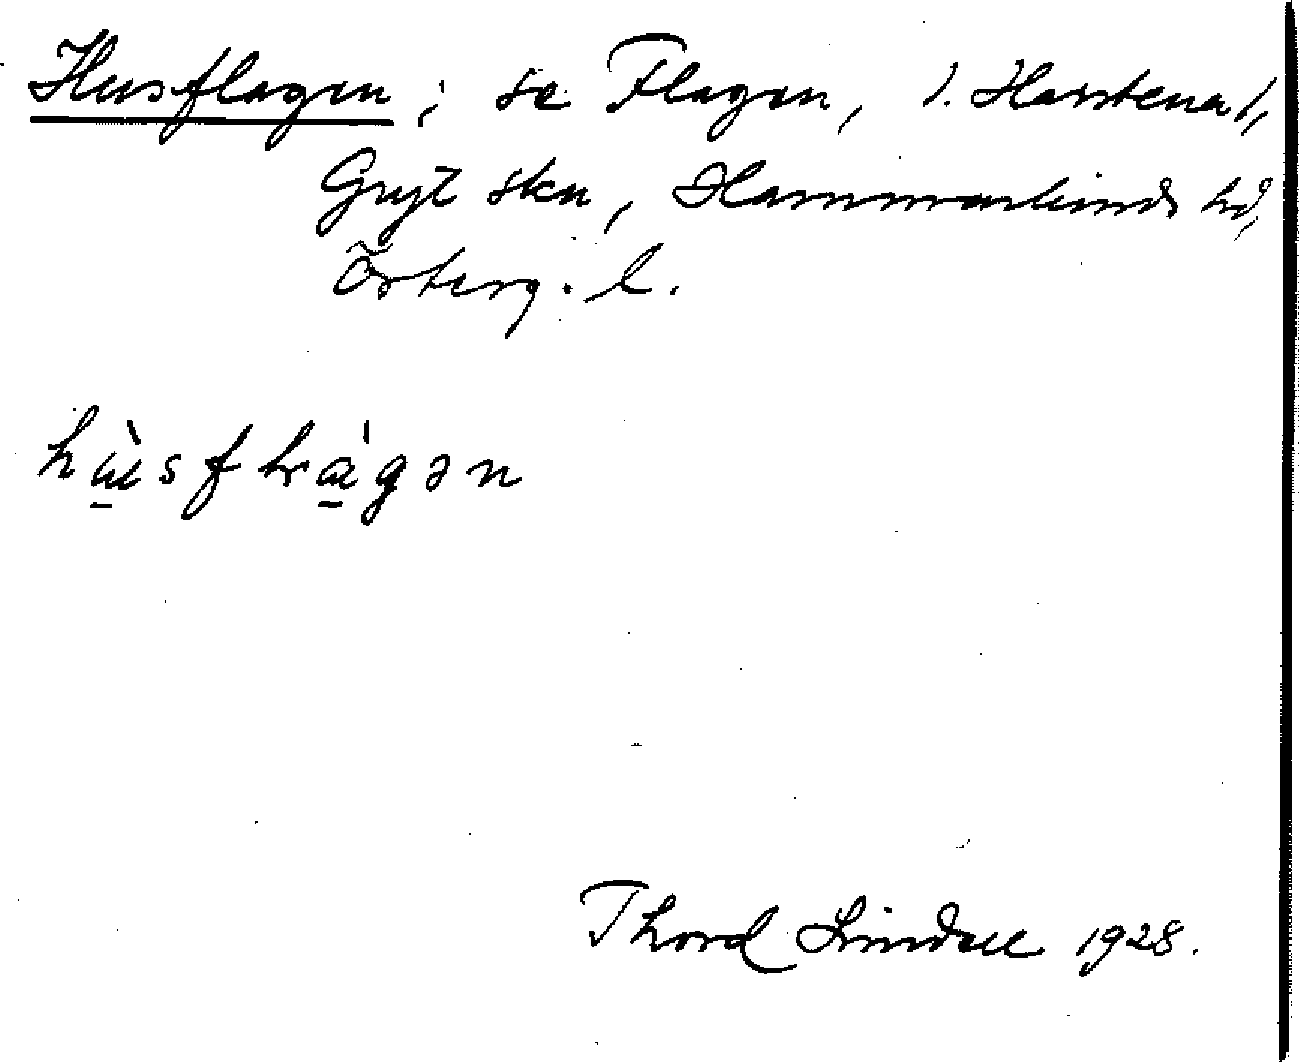 Husflagen; se Flagen, 1. Harstena 1,
Gryt skn, Hammarkinds hd,
Österg. l.
hùsflàgən
Thord Lindell 1928.